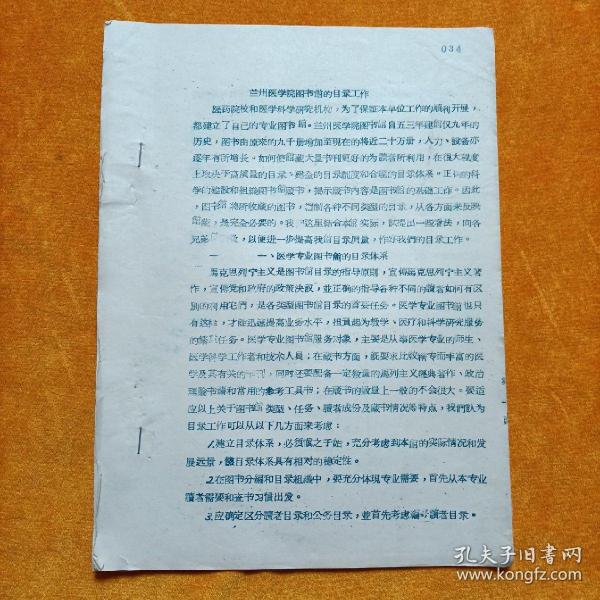 034
兰州医学院图书馆的目录工作
医药院校和医学科学研究机构，为了保证本单位工作的顺利开展，
都建立了自己的专业图书馆。兰州医学院图书馆自五三年建馆仅九年的
历史，图书由原来的九千册增加至现在的将近二十万册，人力、设备亦
逐年有所增长。如何使馆藏大量书刊更好的为读者所利用，在很大程度
上取决于高质量的目录、健全的目录制度和合理的目录体系。正确的科
学的建设和组织图书馆藏书，揭示藏书内容是图书馆的基础工作。因此
，图书馆将所收藏的图书，编制各种不同类型的目录，从各方面来反映
馆藏，是完全必要的。我们这里结合本馆实际，试提出一些看法，向各
兄弟，以便进一步提高我馆目录质量，作好我们的目录工作。
一、医学专业图书馆的目录体系
馬克思列宁主义是图书馆目录的指导原则，宣傳馬克思列宁主义著
作，宣傳党和政府的政策决议，並正确的指导各种不同的讀者如何有区
别的利用它們，是各类型图书馆目录的首要任务。医学专业图书馆也只
有这样，才能迅速提高业务水平，担負起为教学、医疗和科学研究服务
的任务。医学专业图书馆服务对象，主要是从事医学专业的师生、
医学科学工作者和技术人員；在藏书方面，既要求比较精专而丰富的医
学及其有关的书刊，同时还要配备一定数量的馬列主义經典著作、政治
理論书籍和常用的参考工具书；在藏书的数量上一般的不会很大。要适
应以上关于图书馆类型、任务、讀者成份及藏书情况等特点，我們认为
目录工作可以从以下几方面来考虑：
1.建立目录体系，必须慎之于始，充分考虑到本馆的实际情况和发
展远景，使目录体系具有相对的稳定性。
2.在图书分編和目录組織中，要充分体现专业需要，首先从本专业
讀者需要和查书习惯出发。
3.应确定区分讀者目录和公务目录，並首先考虑编好讀者目录。
孔夫子旧书网
www.kongfz.com